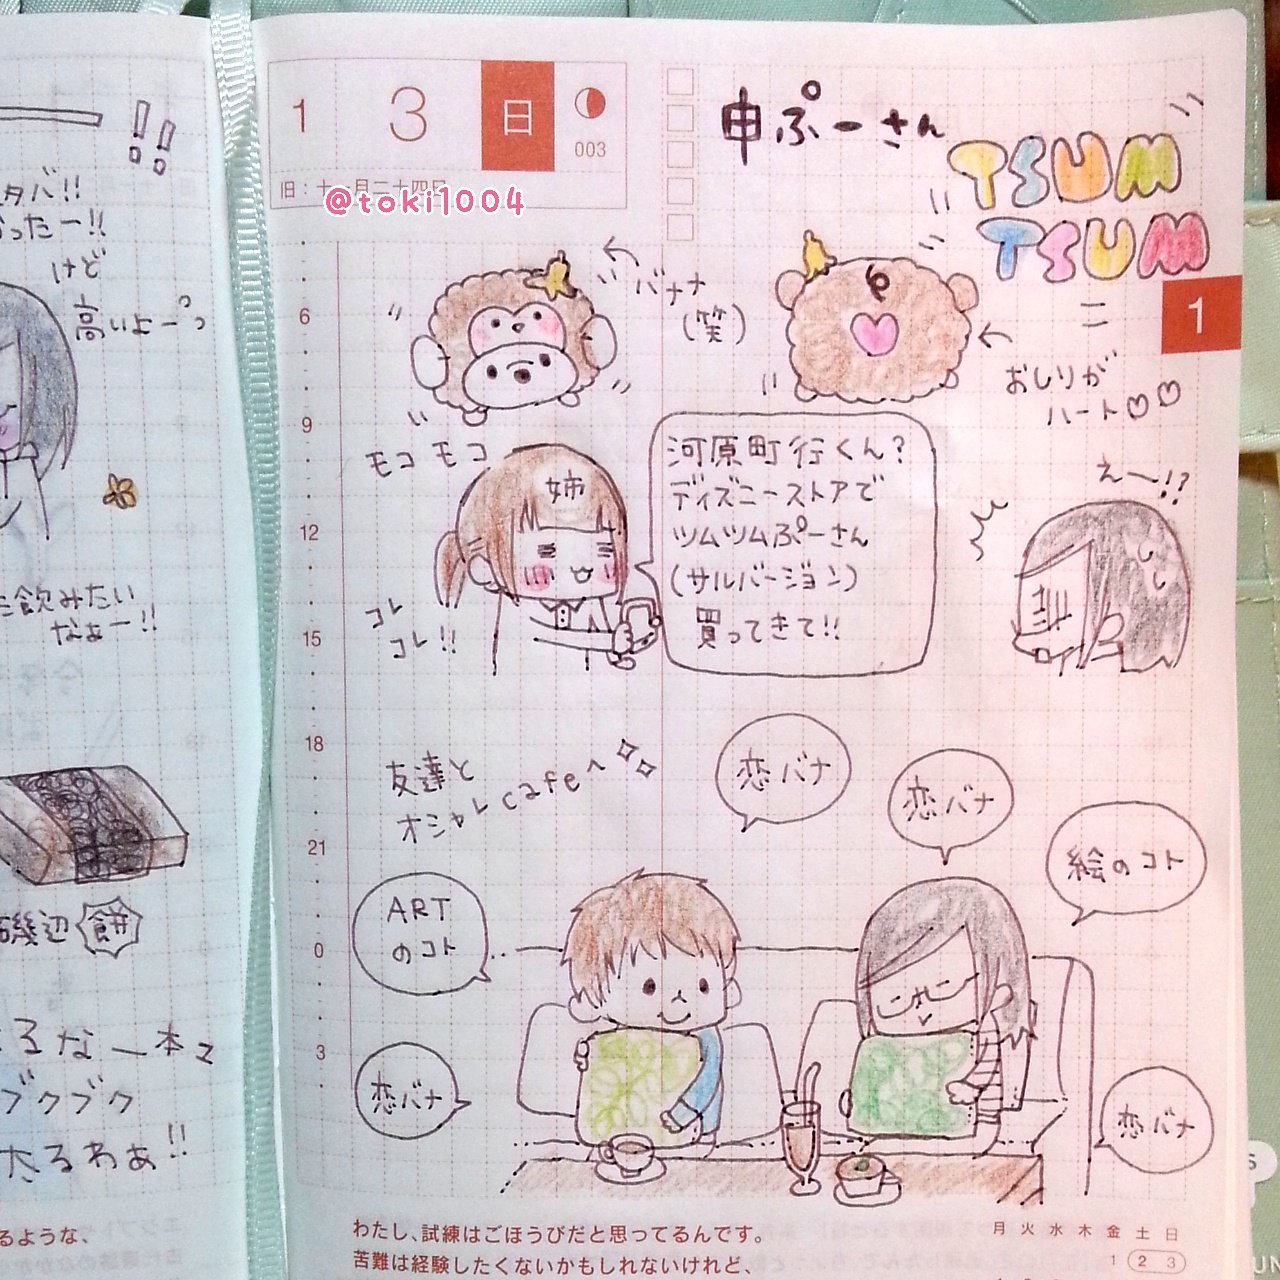 !!
タバ!!
ったー!!
けど
高いよーっ
飲みたい
なぁー!!
磯辺餅
るなー本マ
ブクブク
太るわぁ!!
るような、
1 3 日
003
旧:十一月二十四日
@toki1004
申ぷーさん
TSUM
TSUM
1
バナナ
(笑)
おしりが
ハート♡♡
モコモコ
姉
コレ
コレ!!
河原町行くん?
ディズニーストアで
ツムツムぷーさん
(サルバージョン)
買ってきて!!
えー!?
6
9
12
15
18
21
0
3
友達と
オシャレcafeへ
恋バナ
恋バナ
絵のコト
ART
のコト
恋バナ
恋バナ
わたし、試練はごほうびだと思ってるんです。
苦難は経験したくないかもしれないけれど、
月 火 水 木 金 土 日
1 2 3